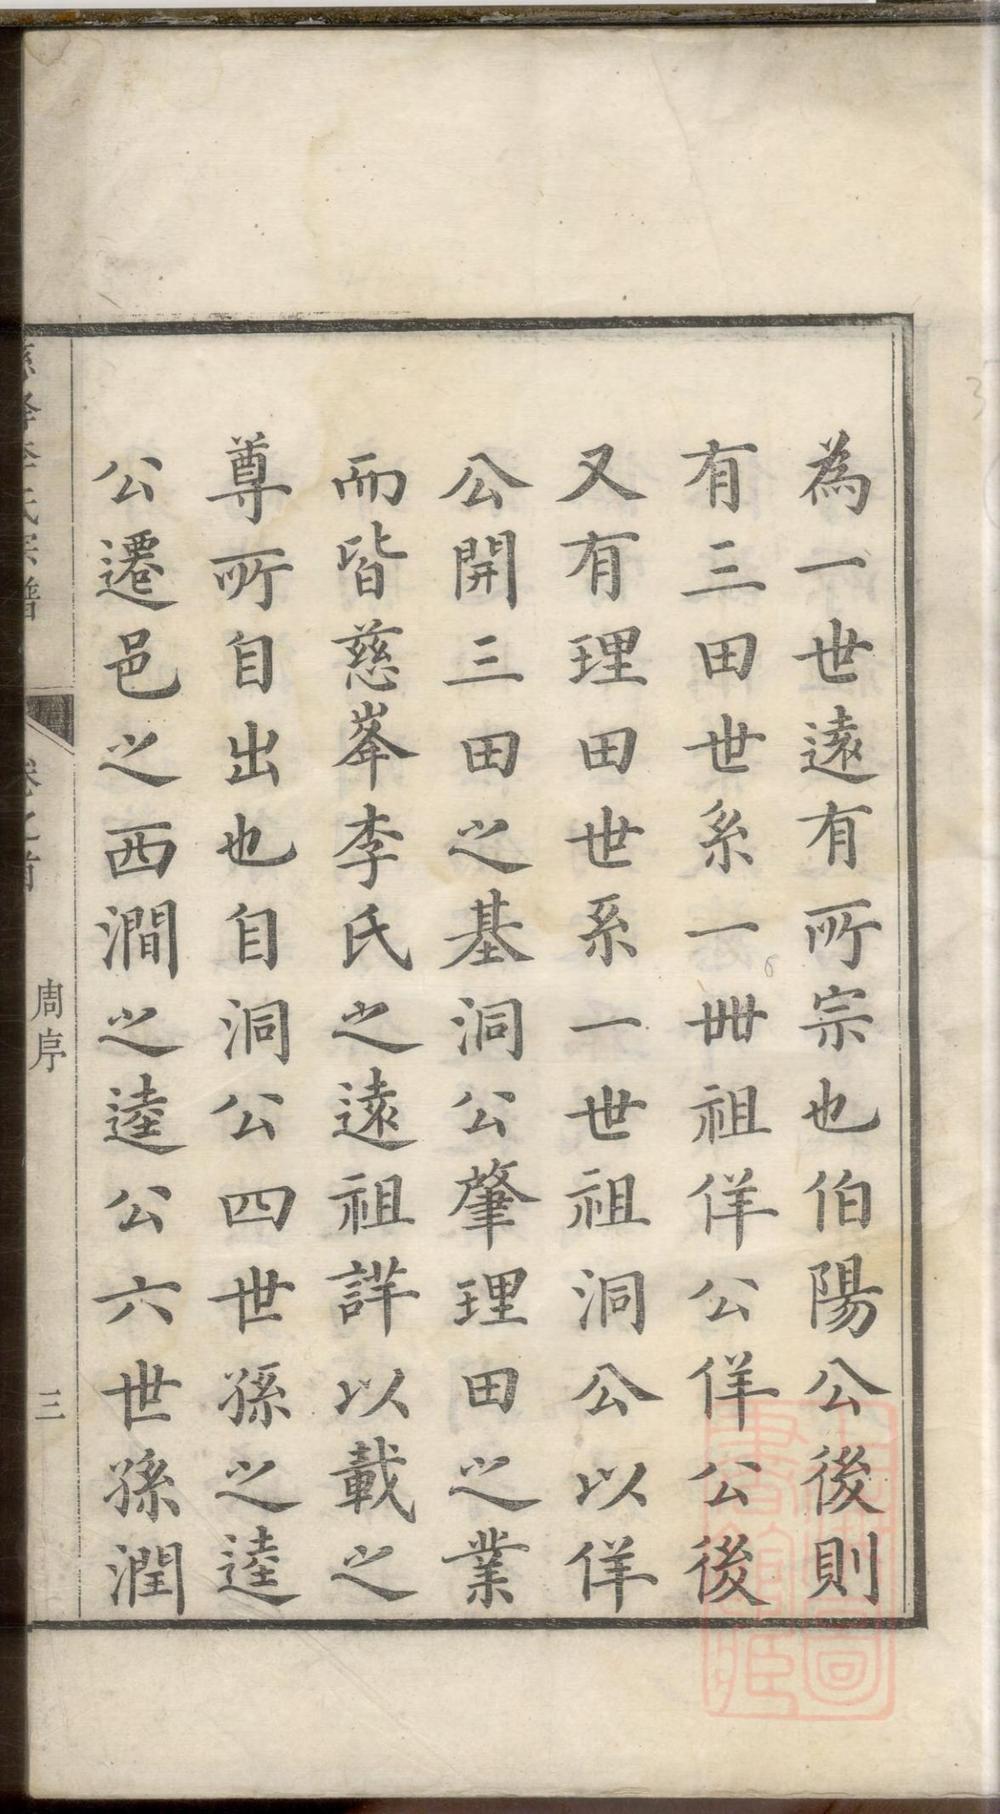 為一世遠有所宗也伯陽公後則
有三田世系一丗祖佯公佯公後
又有理田世系一世祖洞公以佯
公開三田之基洞公肇理田之業
而皆慈峯李氏之遠祖詳以載之
尊所自出也自洞公四世孫之逵
公遷邑之西澗之逵公六世孫潤
氏宗譜
卷之首
周序
三